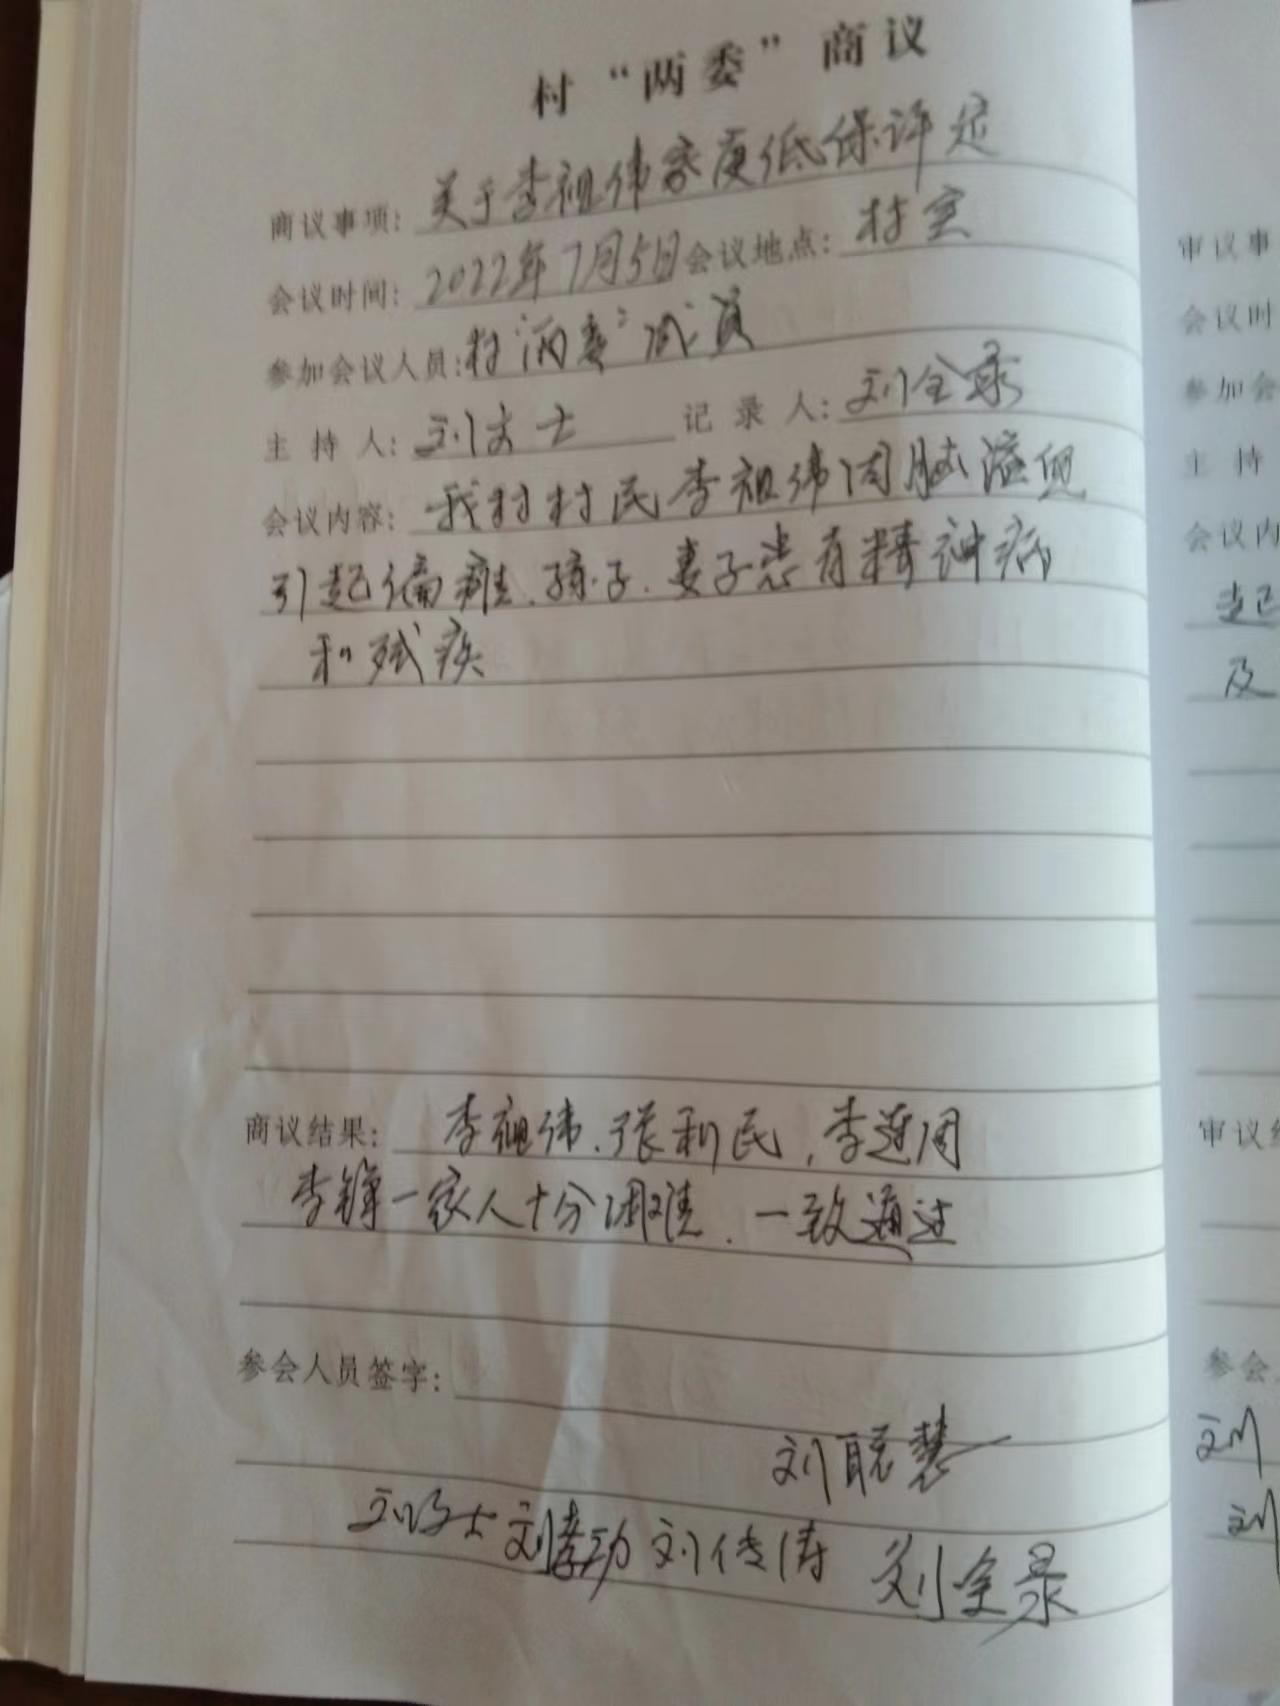 村“两委”商议
商议事项: 关于李祖伟家庭低保评定
会议时间: 2022年7月5日 会议地点: 村室
参加会议人员: 村“两委”成员
主 持 人: 刘 士 记 录 人: 刘全录
会议内容: 我村村民李祖伟因脑溢血
引起偏瘫、孩子、妻子患有精神病
和残疾
商议结果: 李祖伟、张利民,李莲
李锋一家人十分困难、一致通过
参会人员签字:
刘聪慧
刘 士 刘孝动 刘传涛 刘全录
审议事
会议时
参加会
主 持
会议内
起
及
审议结
参会
刘
刘